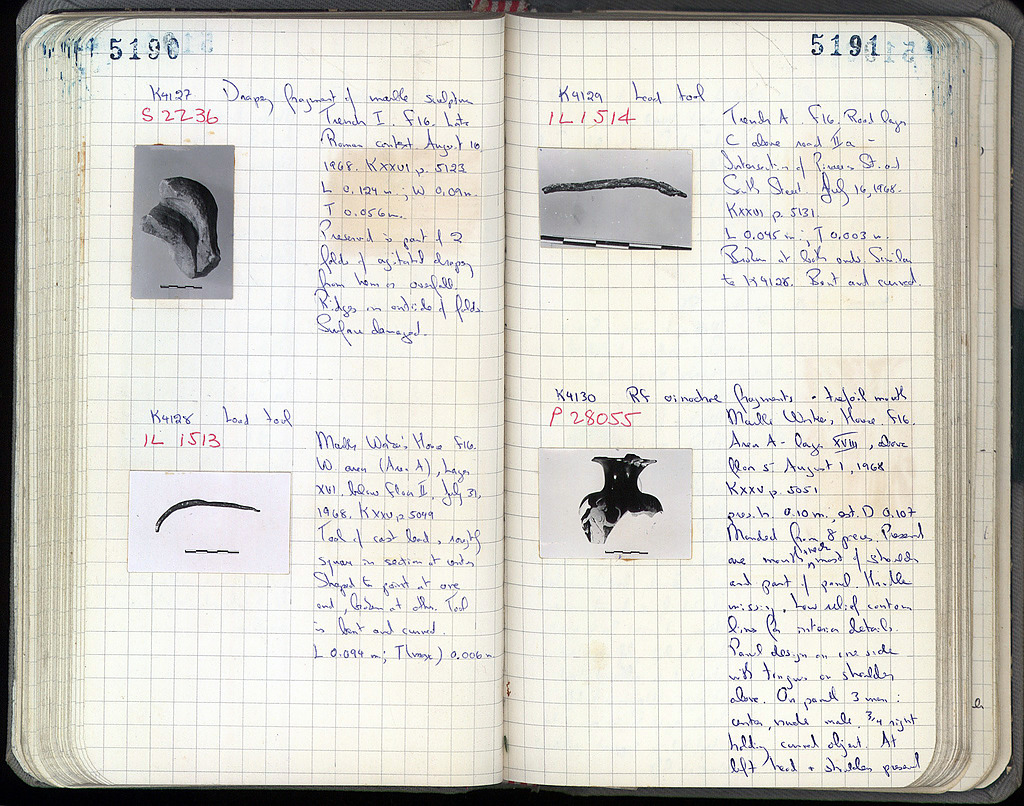 5190
K4127 Drapery fragment of marble sculpture
S 2236
Trench I F16. Late
Roman context August 10
1968. KXXVI p. 5123
L 0.124 m; W 0.09m.
T 0.056m.
Preserved is part of 2
folds of agitated drapery
from hem or overfall
Ridges on outside of folds
Surface damaged.
K4128 Lead tool
IL 1513
Marble Worker's House F16.
W. area (Area A), Layer
XVI, below Floor II. July 31,
1968. KXXV p 5049
Tool of cast lead, roughly
square in section at center
Shaped to point at one
end, broken at other. Tool
is bent and curved.
L 0.094 m; T(max) 0.006 m
5191
K4129 Lead tool
IL 1514
Trench A F16. Road layer
C above road IIa -
Intersection of Piraeus St. and
South Street July 16, 1968.
KXXVI p. 5131
L 0.045 m; T 0.003 m.
Broken at both ends Similar
to K4128. Bent and curved.
K4130 RF oinochoe fragments - trefoil mouth
P 28055
Marble Worker's House F16.
Area A - Layer XVIII, above
floor 5 August 1, 1968
KXXV p. 5051
pres. h. 0.10 m; est. D 0.107
Mended from 8 pieces. Present
are mouth, neck, most of shoulder
and part of panel Handle
missing. Low relief contour
lines for interior details.
Panel design on one side
with tongues on shoulder
above. On panel 3 men:
center, nude male 3/4 right
holding curved object. At
left head + shoulders present